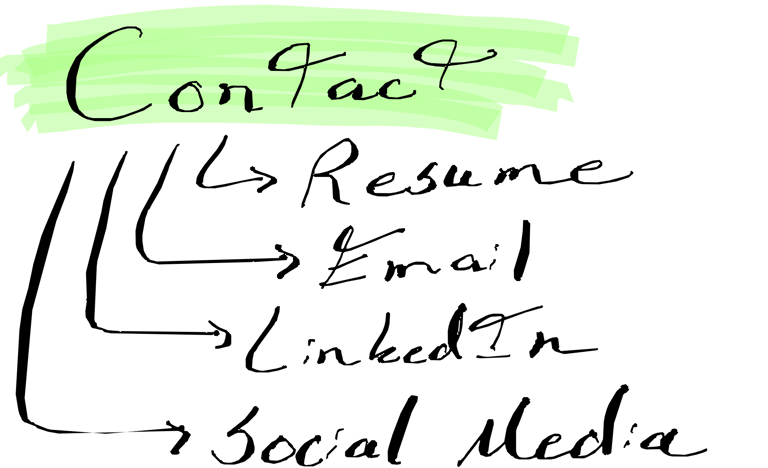 Contact
Resume
Email
LinkedIn
Social Media